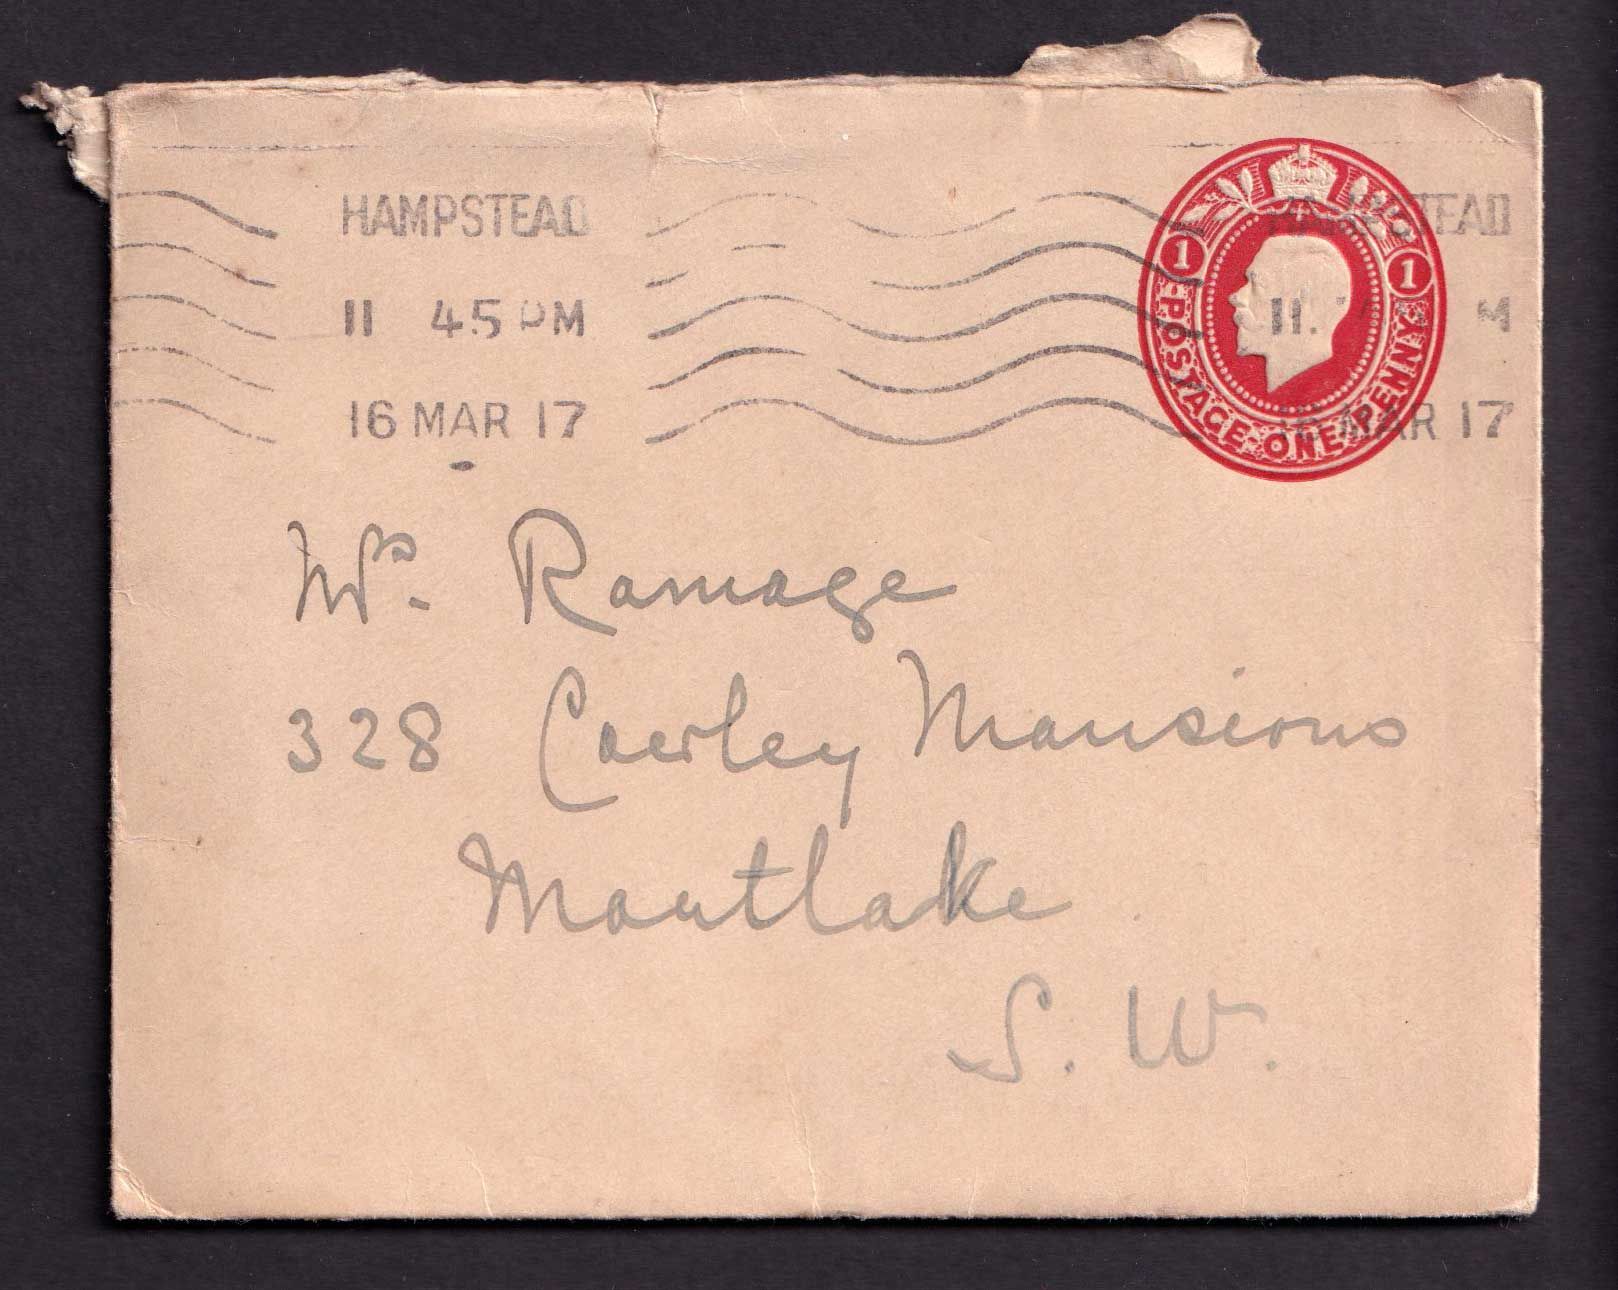 HAMPSTEAD HAMPSTEAD
11 45 PM 11. M
16 MAR 17 16 MAR 17
1 1
POSTAGE ONE PENNY
Mrs. Ramage
328 Cowley Mansions
Mortlake
S. W.